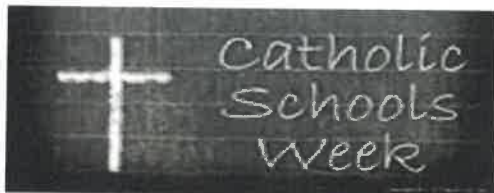 Catholic
Schools
Week